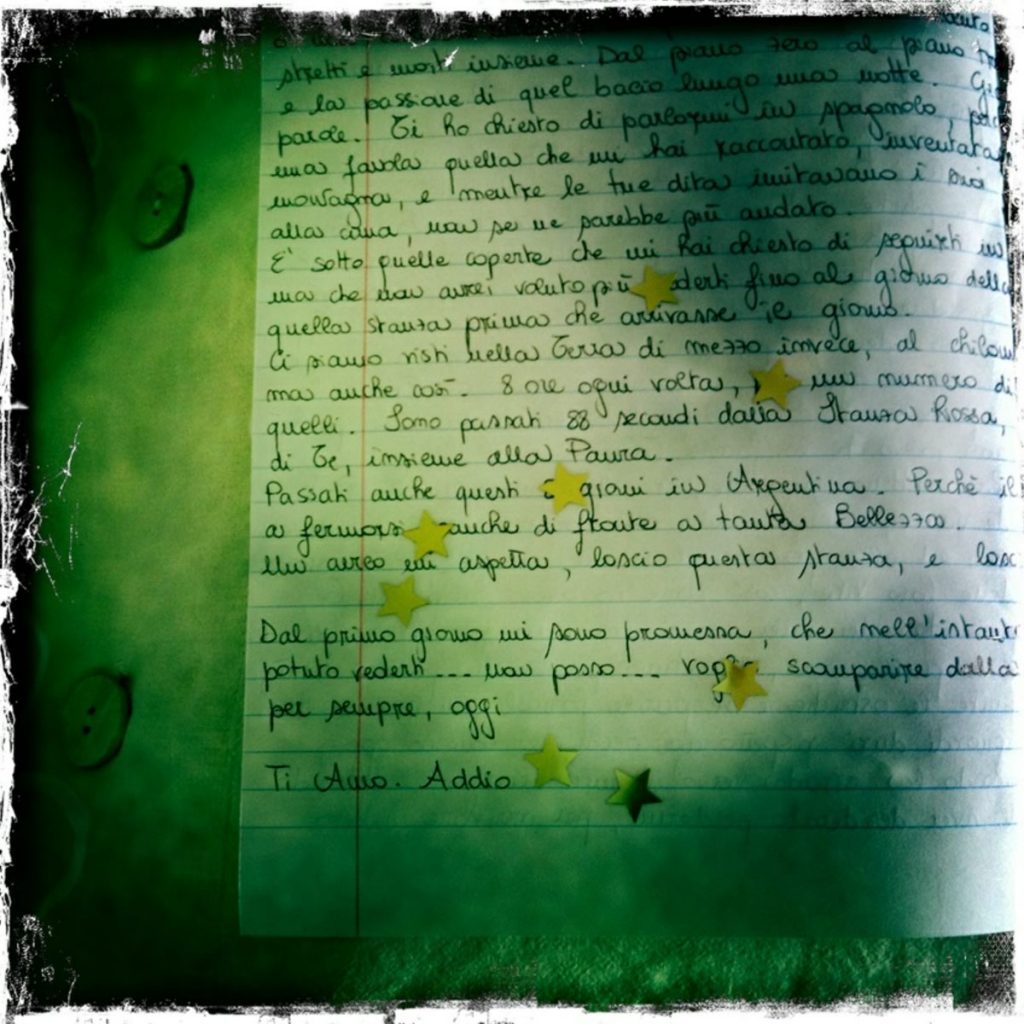 stretti e morti insieme. Dal piano zero al piano
e la passione di quel bacio lungo una notte.
parole. Ti ho chiesto di parlarmi in spagnolo,
una favola quella che mi hai raccontato, inventata
montagna, e mentre le tue dita imitavano i
alla cima, non se ne sarebbe più andato.
E' sotto quelle coperte che mi hai chiesto di seguirti in
ma che non avrei voluto più fino al giorno
quella stanza prima che arrivasse il giorno.
Ci siamo visti nella Terra di mezzo invece, al
ma anche così. 8 ore ogni volta, un numero di
quelli. Sono passati 88 secondi dalla Stanza Rossa,
di Te, insieme alla Paura.
Passati anche questi giorni in Argentina. Perchè il
a fermarsi anche di fronte a tanta Bellezza.
Un aereo mi aspetta, lascio questa stanza, e
Dal primo giorno mi sono promessa, che nell'
potuto vederti... non posso... scomparire dalla
per sempre, oggi
Ti Amo. Addio